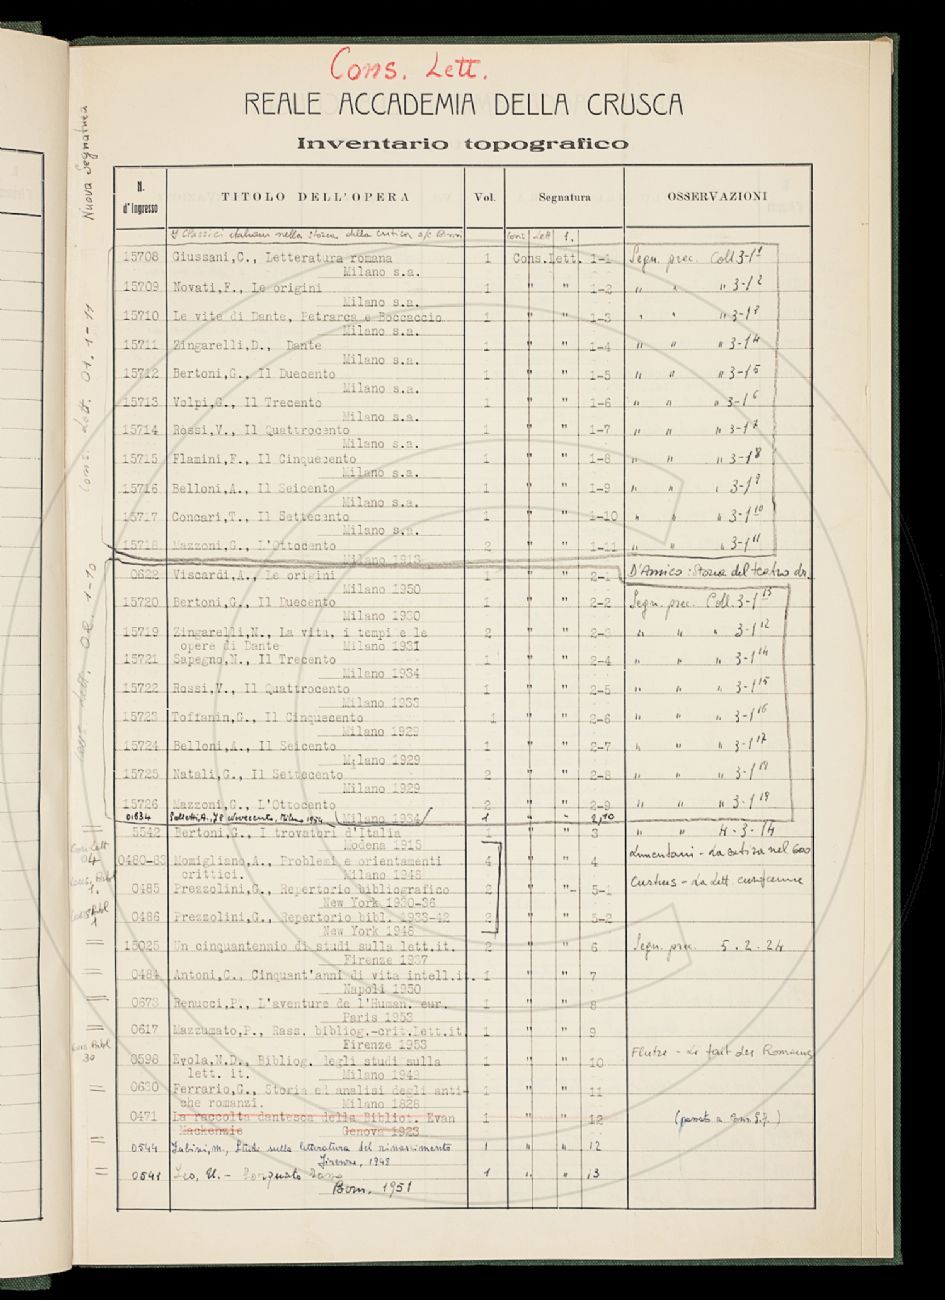 Cons. Lett.
REALE ACCADEMIA DELLA CRUSCA
Inventario topografico
Nuova Segnatura
N. d'Ingresso TITOLO DELL'OPERA Vol. Segnatura OSSERVAZIONI
I Classici italiani nella storia della critica Cons Lett 1.
15708 Giussani,C., Letteratura romana 1 Cons.Lett. 1-1 Segn. prec. Coll 3-1 1
Milano s.a.
15709 Novati,F., Le origini 1 " " 1-2 " " " 3-1 2
Milano s.a.
15710 Le vite di Dante, Petrarca e Boccaccio 1 " " 1-3 " " " 3-1 3
Milano s.a.
15711 Zingarelli,D., Dante 1 " " 1-4 " " " 3-1 4
Milano s.a.
15712 Bertoni,G., Il Duecento 1 " " 1-5 " " " 3-1 5
Milano s.a.
15713 Volpi,G., Il Trecento 1 " " 1-6 " " " 3-1 6
Milano s.a.
15714 Rossi,V., Il Quattrocento 1 " " 1-7 " " " 3-1 7
Milano s.a.
15715 Flamini,F., Il Cinquecento 1 " " 1-8 " " " 3-1 8
Milano s.a.
15716 Belloni,A., Il Seicento 1 " " 1-9 " " " 3-1 9
Milano s.a.
15717 Concari,T., Il Settecento 1 " " 1-10 " " " 3-1 10
Milano s.a.
15718 Mazzoni,G., L'Ottocento 2 " " 1-11 " " " 3-1 11
Milano 1913
Cons. Lett. 01. 1-11
0622 Viscardi,A., Le origini 1 " " 2-1 D'Amico: Storia del teatro dr.
Milano 1950
15720 Bertoni,G., Il Duecento 1 " " 2-2 Segn. prec. Coll. 3-1 13
Milano 1930
15719 Zingarelli,N., La vita, i tempi e le 2 " " 2-3 " " " 3-1 12
opere di Dante Milano 1931
15721 Sapegno,N., Il Trecento 1 " " 2-4 " " " 3-1 14
Milano 1934
15722 Rossi,V., Il Quattrocento 1 " " 2-5 " " " 3-1 15
Milano 1933
15723 Toffanin,G., Il Cinquecento 1 " " 2-6 " " " 3-1 16
Milano 1929
15724 Belloni,A., Il Seicento 1 " " 2-7 " " " 3-1 17
Milano 1929
15725 Natali,G., Il Settecento 2 " " 2-8 " " " 3-1 18
Milano 1929
15726 Mazzoni,G., L'Ottocento 2 " " 2-9 " " " 3-1 19
Milano 1934
Cons. Lett. 02. 1-10
01834 Galletti, A., Il Novecento, Milano 1954 1 " " 2,10
5542 Bertoni,G., I trovatori d'Italia 1 " " 3 " " 4-3-14
Modena 1915
Cons. Lett 04
0480-83 Momigliano,A., Problemi e orientamenti 4 " " 4 Limentani - La satira nel 600
critici. Milano 1948
Cons. Bibl 1.
0485 Prezzolini,G., Repertorio bibliografico 2 " "- 5-1
New York 1930-36
Cons. Bibl 1
0486 Prezzolini,G., Repertorio bibl. 1933-42 2 " " 5-2
New York 1948
15025 Un cinquantennio di studi sulla lett.it. 2 " " 6 Segn. prec. 5.2.24
Firenze 1937
0484 Antoni,C., Cinquant'anni di vita intell.it. 1 " " 7
Napoli 1950
0673 Renucci,P., L'aventure de l'Human. eur. 1 " " 8
Paris 1953
0617 Mazzumato,P., Rass. bibliog.-crit.Lett.it 1 " " 9
Firenze 1953
Cons. Bibl 30
0598 Evola,N.D., Bibliog. degli studi sulla 1 " " 10
lett. it. Milano 1949
0630 Ferrario,G., Storia ed analisi degli anti- 1 " " 11
che romanzi. Milano 1828
0471 La raccolta dantesca della Bibliot. Evan 1 " " 12
Mackenzie Genova 1923
0544 Rubini, M., Studi sulla letteratura del rinascimento 1 " " 12
Firenze, 1948
0541 Leo, U. - Torquato Tasso 1 " " 13
Bern, 1951